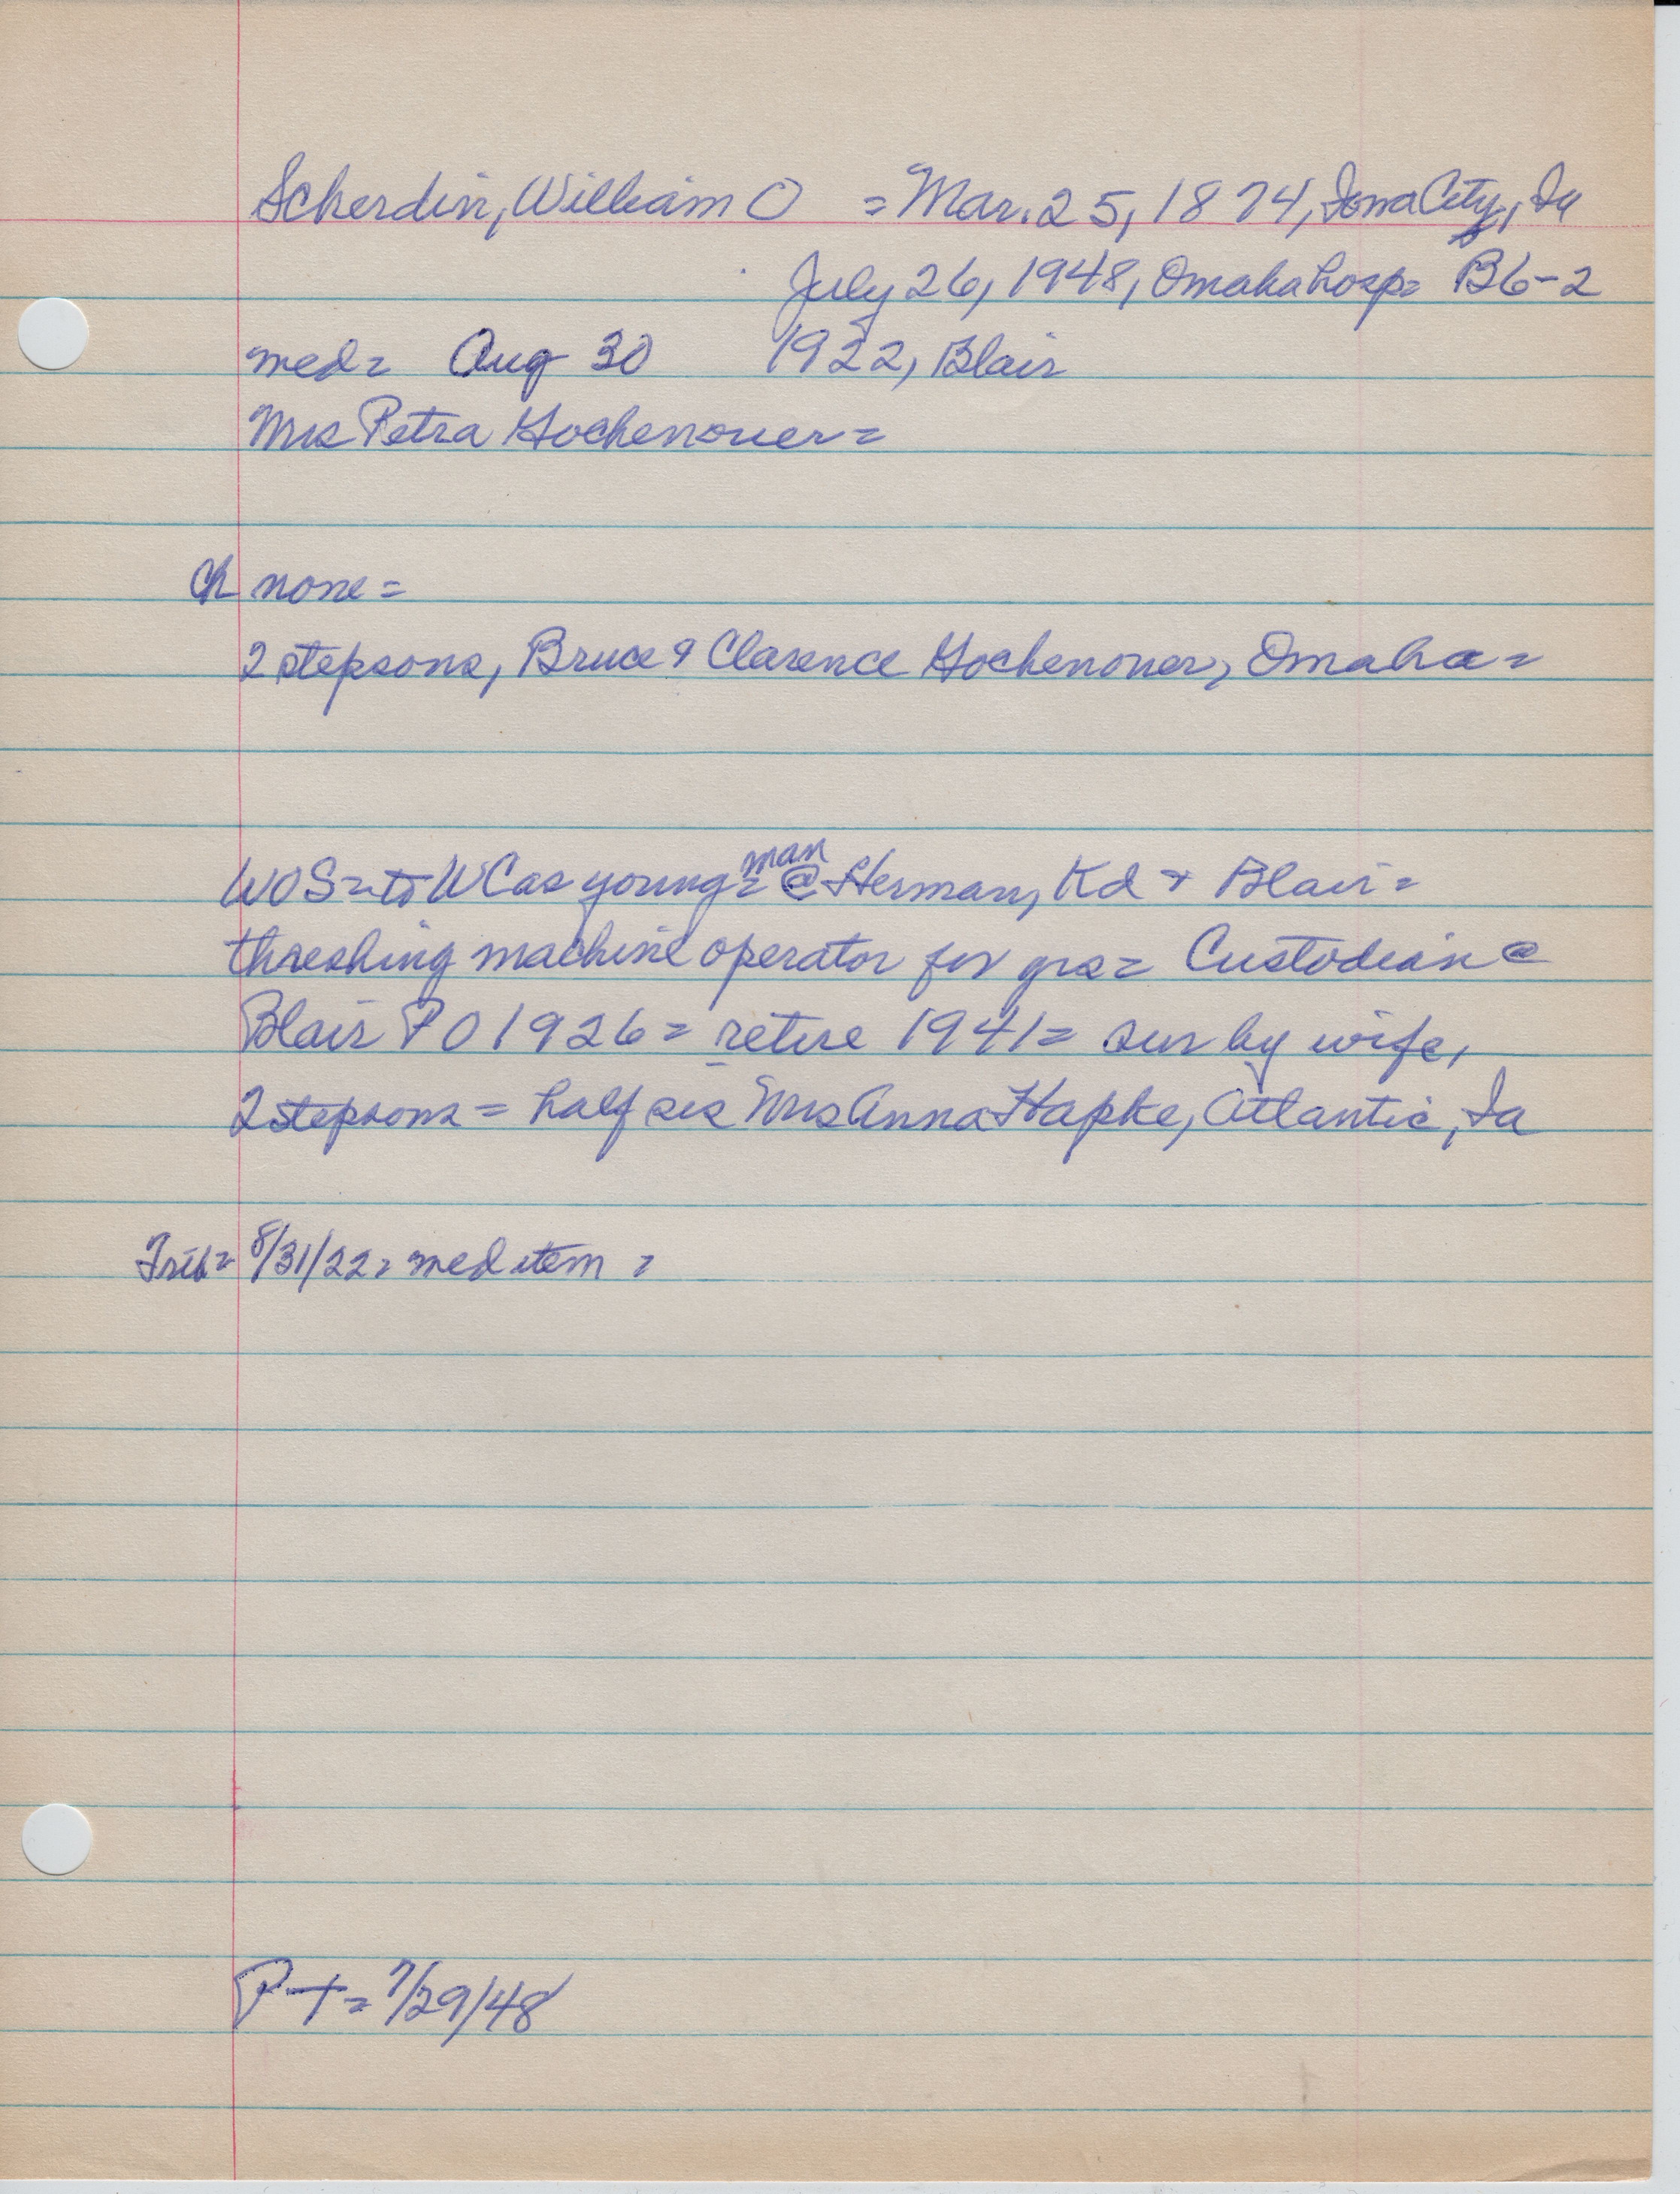 Scherdin, William O = Mar. 25, 1874, Iowa City, Ia
July 26, 1948, Omaha hosp= B6-2
med= Aug 30 1922, Blair
Mrs Petra Gochenouer=
Ch none=
2 stepsons, Bruce & Clarence Gochenouer, Omaha=
man
WOS= to WC as young= @ Herman, Kd + Blair=
threshing machine operator for yrs= Custodian @
Blair PO 1926= retire 1941= sur by wife,
2 stepsons= half sis Mrs Anna Hapke, Atlantic, Ia
Trib= 8/31/22= med item =
P-T= 7/29/48